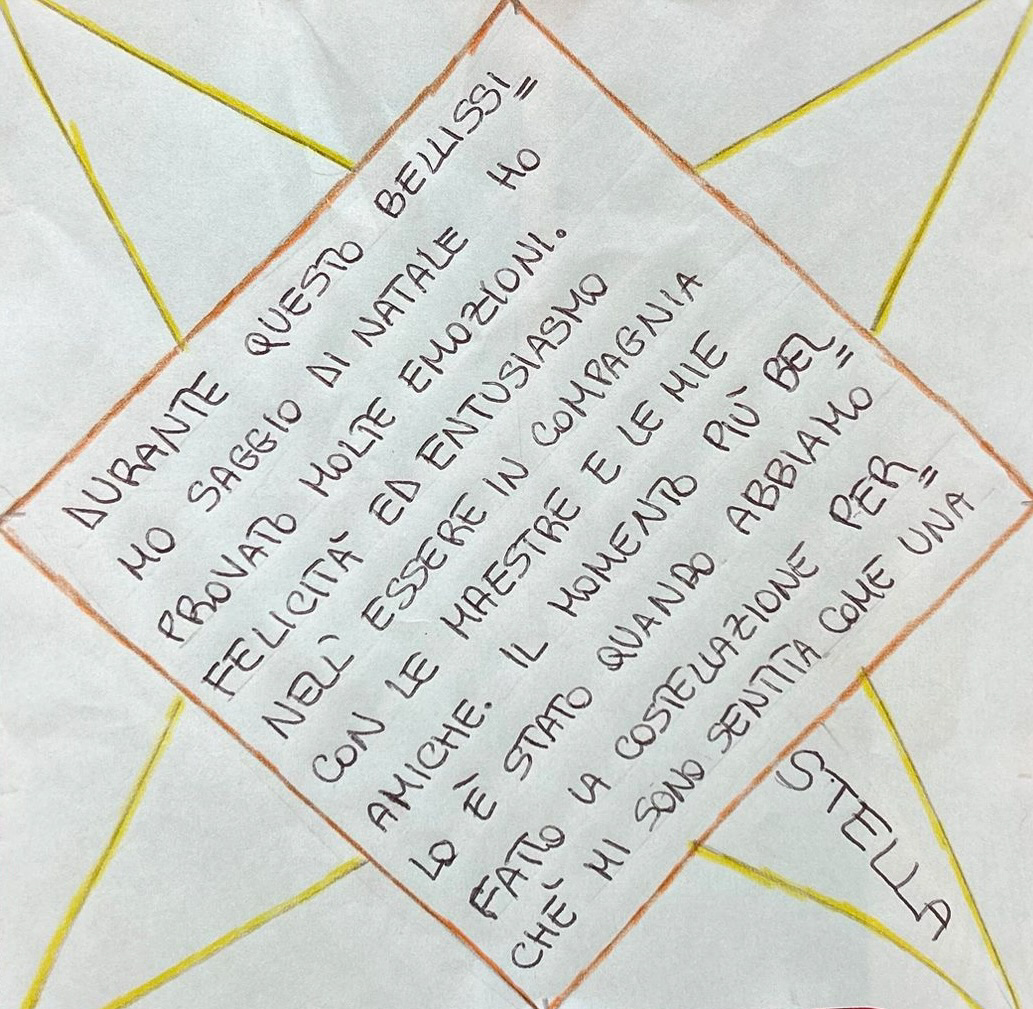 DURANTE QUESTO BELLISSI=
MO SAGGIO DI NATALE HO
PROVATO MOLTE EMOZIONI.
FELICITÀ ED ENTUSIASMO
NELL' ESSERE IN COMPAGNIA
CON LE MAESTRE E LE MIE
AMICHE. IL MOMENTO PIÙ BEL=
LO È STATO QUANDO ABBIAMO
FATTO LA COSTELLAZIONE PER=
CHÈ MI SONO SENTITA COME UNA
STELLA